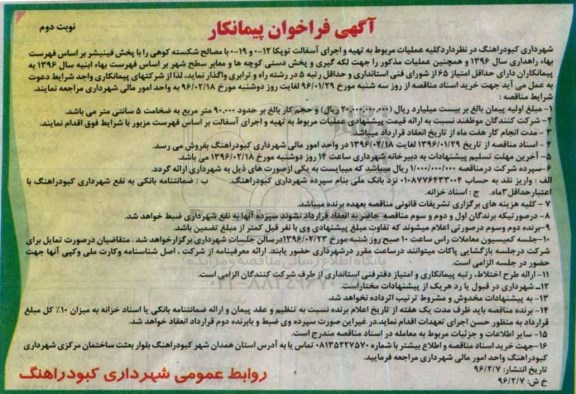 آگهی فراخوان پیمانکار
نوبت دوم
شهرداری کبودراهنگ در نظر دارد کلیه عملیات مربوط به تهیه و اجرای آسفالت توپکا ۱۲-۰ و ۱۹-۰ با مصالح شکسته کوهی را با پخش فینیشر بر اساس فهرست
بهاء راهداری سال ۱۳۹۶ و همچنین عملیات مذکور را جهت لکه گیری و پخش دستی کوچه ها و معابر سطح شهر بر اساس فهرست بهاء ابنیه سال ۱۳۹۶ به
پیمانکاران دارای حداقل امتیاز ۶۵ از شورای فنی استانداری و حداقل رتبه ۵ در رشته راه و ترابری واگذار نماید. لذا از شرکتهای پیمانکاری واجد شرایط دعوت
به عمل می آید جهت خرید اسناد مناقصه از روز سه شنبه مورخ ۹۶/۰۱/۲۹ لغایت روز دوشنبه مورخ ۹۶/۰۲/۱۸ به واحد امور مالی شهرداری مراجعه نمایند.
شرایط مناقصه:
۱- مبلغ اولیه پیمان بالغ بر بیست میلیارد ریال (۲۰/۰۰۰/۰۰۰/۰۰۰ ریال) و حجم کار بالغ بر حدود ۹۰/۰۰۰ متر مربع به ضخامت ۵ سانتی متر می باشد.
۲- شرکت کنندگان موظفند نسبت به ارائه قیمت پیشنهادی عملیات مربوط به تهیه و اجرای آسفالت بر اساس فهرست مزبور با شرایط فوق اقدام نمایند.
۳- مدت انجام کار هفت ماه از تاریخ انعقاد قرارداد میباشد.
۴- اسناد مناقصه از تاریخ ۱۳۹۶/۰۱/۲۹ لغایت ۱۳۹۶/۰۲/۱۸ در واحد امور مالی شهرداری کبودراهنگ بفروش می رسد.
۵- آخرین مهلت تسلیم پیشنهادات به دبیرخانه شهرداری ساعت ۱۴ روز دوشنبه مورخ ۱۳۹۶/۰۲/۱۸ می باشد.
۶- سپرده شرکت در مناقصه ۱/۰۰۰/۰۰۰/۰۰۰ ریال میباشد که میبایست به یکی از صورت های ذیل به شهرداری ارائه گردد.
الف: واریز نقد به حساب ۰۱۰۸۷۷۶۴۳۳۰۰۴ نزد بانک ملی بنام سپرده شهرداری کبودراهنگ. ب: ضمانتنامه بانکی به نفع شهرداری کبودراهنگ با
اعتبار حداقل ۳ ماه. ج: اسناد خزانه.
۷- کلیه هزینه های برگزاری تشریفات قانونی مناقصه بعهده برنده میباشد.
۸- در صورتیکه برندگان اول و دوم و سوم مناقصه حاضر به انعقاد قرارداد نشوند سپرده آنها به نفع شهرداری ضبط خواهد شد.
۹- برنده دوم وسوم در صورتی اعلام میشوند که تفاوت مبلغ پیشنهادی وی با نفر قبل کمتر از مبلغ تضمین باشد.
۱۰- جلسه کمیسیون معاملات راس ساعت ۱۰ صبح روز شنبه مورخ ۱۳۹۶/۰۲/۲۳ در سالن جلسات شهرداری برگزار خواهد شد. متقاضیان در صورت تمایل برای
شرکت در جلسه بازگشایی پاکات میتوانند در ساعت مقرر در شهرداری حضور یابند. ارائه معرفینامه از شرکت، اصل شناسنامه و کارت ملی و کپی آنها جهت
حضور در جلسه الزامی است.
۱۱- ارائه طرح اختلاط، رتبه پیمانکاری و امتیاز دفتر فنی استانداری از طرف شرکت کنندگان الزامی است.
۱۲- شهرداری در قبول یا رد هر یک از پیشنهادات مختار است.
۱۳- به پیشنهادات مخدوش و مشروط ترتیب اثر داده نخواهد شد.
۱۴- برنده مناقصه باید ظرف مدت یک هفته از تاریخ اعلام برنده نسبت به تنظیم و عقد پیمان و ارائه ضمانتنامه بانکی یا اسناد خزانه به میزان ۱۰٪ کل مبلغ
قرارداد به منظور حسن اجرای تعهدات اقدام نماید. در غیر این صورت سپرده وی ضبط و با برنده دوم قرارداد انعقاد خواهد شد.
۱۵- سایر اطلاعات و جزئیات مربوط به معامله در اسناد مناقصه مندرج است.
۱۶- جهت خرید اسناد مناقصه و اطلاع بیشتر با شماره ۰۸۱۳۵۲۲۷۵۷۰ تماس یا به آدرس استان همدان شهر کبودراهنگ بلوار بعثت ساختمان مرکزی شهرداری
کبودراهنگ واحد امور مالی شهرداری مراجعه فرمایید.
تاریخ انتشار: ۹۶/۲/۷
خ ش: ۹۶/۲/۷
روابط عمومی شهرداری کبودراهنگ